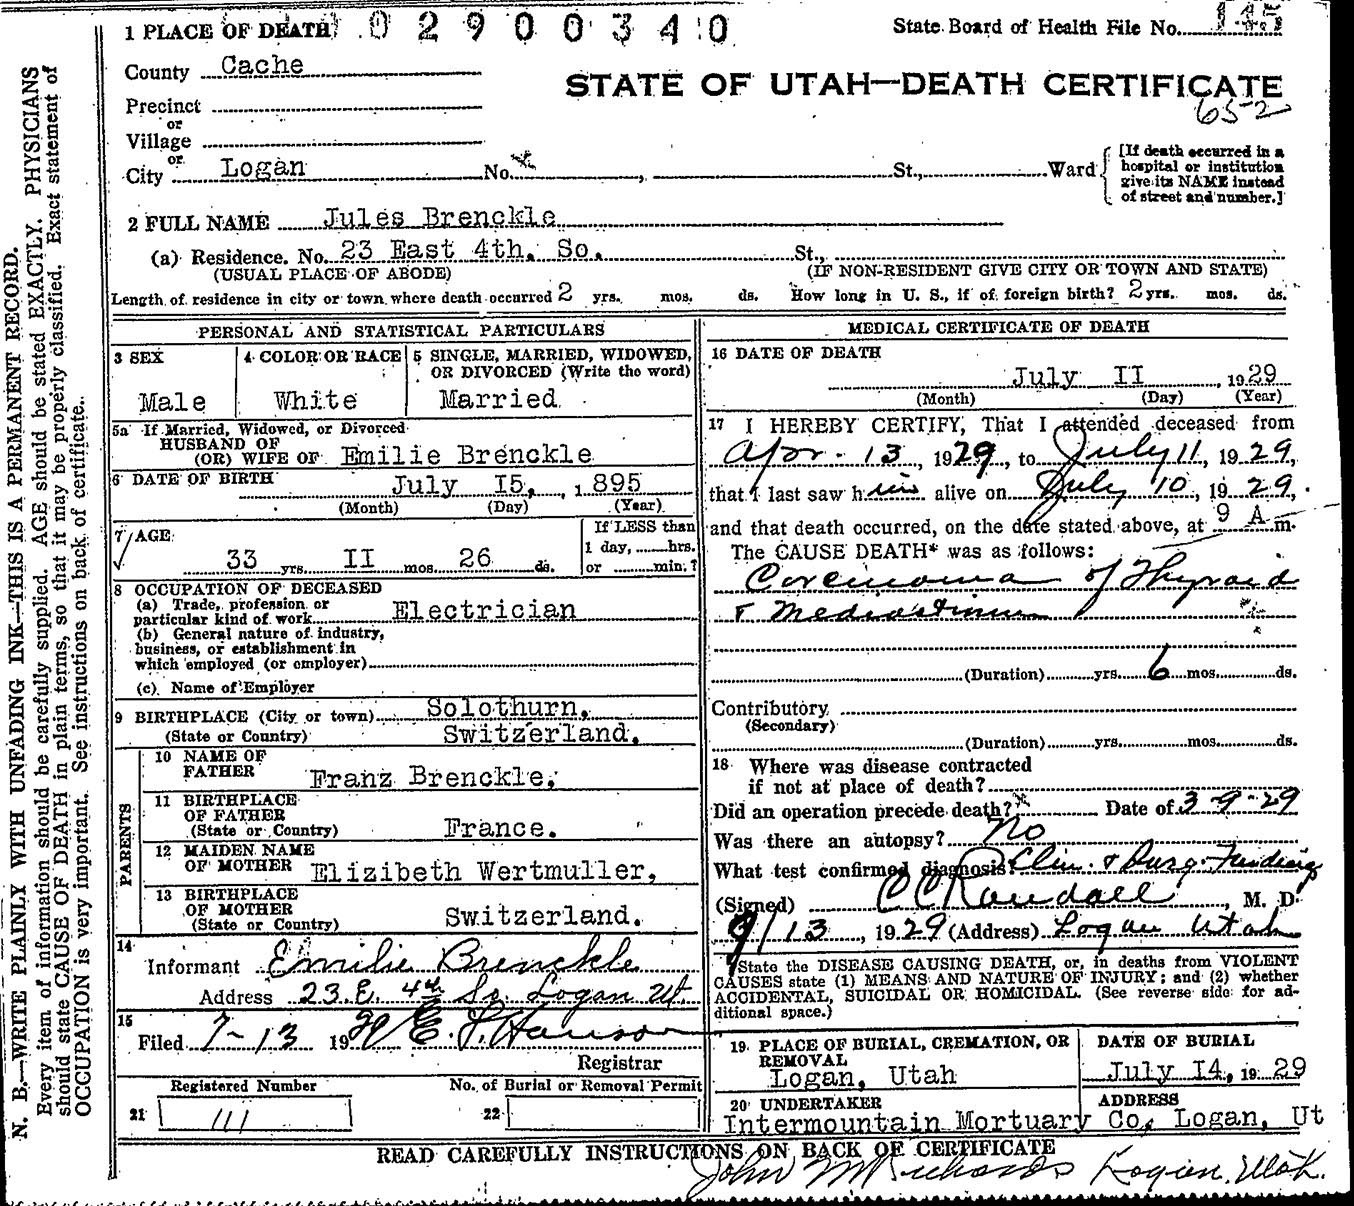 1 PLACE OF DEATH 02900340
State Board of Health File No. 145
County Cache
STATE OF UTAH—DEATH CERTIFICATE
652
Precinct
or
Village
or
City Logan No. St., Ward
[If death occurred in a
hospital or institution
give its NAME instead
of street and number.]
2 FULL NAME Jules Brenckle
(a) Residence. No. 23 East 4th. So. St.,
(USUAL PLACE OF ABODE) (IF NON-RESIDENT GIVE CITY OR TOWN AND STATE)
Length of residence in city or town where death occurred 2 yrs. mos. ds. How long in U. S., if of foreign birth? 2 yrs. mos. ds.
PERSONAL AND STATISTICAL PARTICULARS
3 SEX
Male
4 COLOR OR RACE
White
5 SINGLE, MARRIED, WIDOWED,
OR DIVORCED (Write the word)
Married
5a If Married, Widowed, or Divorced
HUSBAND OF
(OR) WIFE OF Emilie Brenckle
6 DATE OF BIRTH July I5, 1895
(Month) (Day) (Year)
7 AGE
33 yrs II mos 26 ds.
If LESS than
1 day, hrs.
or min.?
8 OCCUPATION OF DECEASED
(a) Trade, profession or
particular kind of work Electrician
(b) General nature of industry,
business, or establishment in
which employed (or employer)
(c) Name of Employer
9 BIRTHPLACE (City or town) Solothurn,
(State or Country) Switzerland.
PARENTS
10 NAME OF
FATHER Franz Brenckle,
11 BIRTHPLACE
OF FATHER
(State or Country) France.
12 MAIDEN NAME
OF MOTHER Elizibeth Wertmuller,
13 BIRTHPLACE
OF MOTHER
(State or Country) Switzerland.
14
Informant Emilie Brenckle
Address 23 E. 4th So. Logan Ut.
15
Filed 7-13 1929 E. F. Hanson
Registrar
Registered Number No. of Burial or Removal Permit
21 111 22
MEDICAL CERTIFICATE OF DEATH
16 DATE OF DEATH
July II, 1929
(Month) (Day) (Year)
17 I HEREBY CERTIFY, That I attended deceased from
Apr. 13, 1929, to July 11, 1929,
that I last saw him alive on July 10, 1929,
and that death occurred, on the date stated above, at 9 A m.
The CAUSE DEATH* was as follows:
Carcinoma of Thyroid
& Mediastinum
(Duration) yrs. 6 mos. ds.
Contributory
(Secondary)
(Duration) yrs. mos. ds.
18 Where was disease contracted
if not at place of death?
Did an operation precede death? x Date of 3-9-29
Was there an autopsy? No
What test confirmed diagnosis? Clin. & Surg. Finding
(Signed) C C Randall, M. D
7/13, 1929 (Address) Logan Utah
*State the DISEASE CAUSING DEATH, or, in deaths from VIOLENT
CAUSES state (1) MEANS AND NATURE OF INJURY; and (2) whether
ACCIDENTAL, SUICIDAL OR HOMICIDAL. (See reverse side for ad-
ditional space.)
19 PLACE OF BURIAL, CREMATION, OR
REMOVAL
Logan, Utah
DATE OF BURIAL
July I4, 1929
20 UNDERTAKER ADDRESS
Intermountain Mortuary Co, Logan, Ut
READ CAREFULLY INSTRUCTIONS ON BACK OF CERTIFICATE
John M Richards Logan, Utah.
N. B.—WRITE PLAINLY WITH UNFADING INK—THIS IS A PERMANENT RECORD.
Every item of information should be carefully supplied. AGE should be stated EXACTLY. PHYSICIANS
should state CAUSE OF DEATH in plain terms, so that it may be properly classified. Exact statement of
OCCUPATION is very important. See instructions on back of certificate.